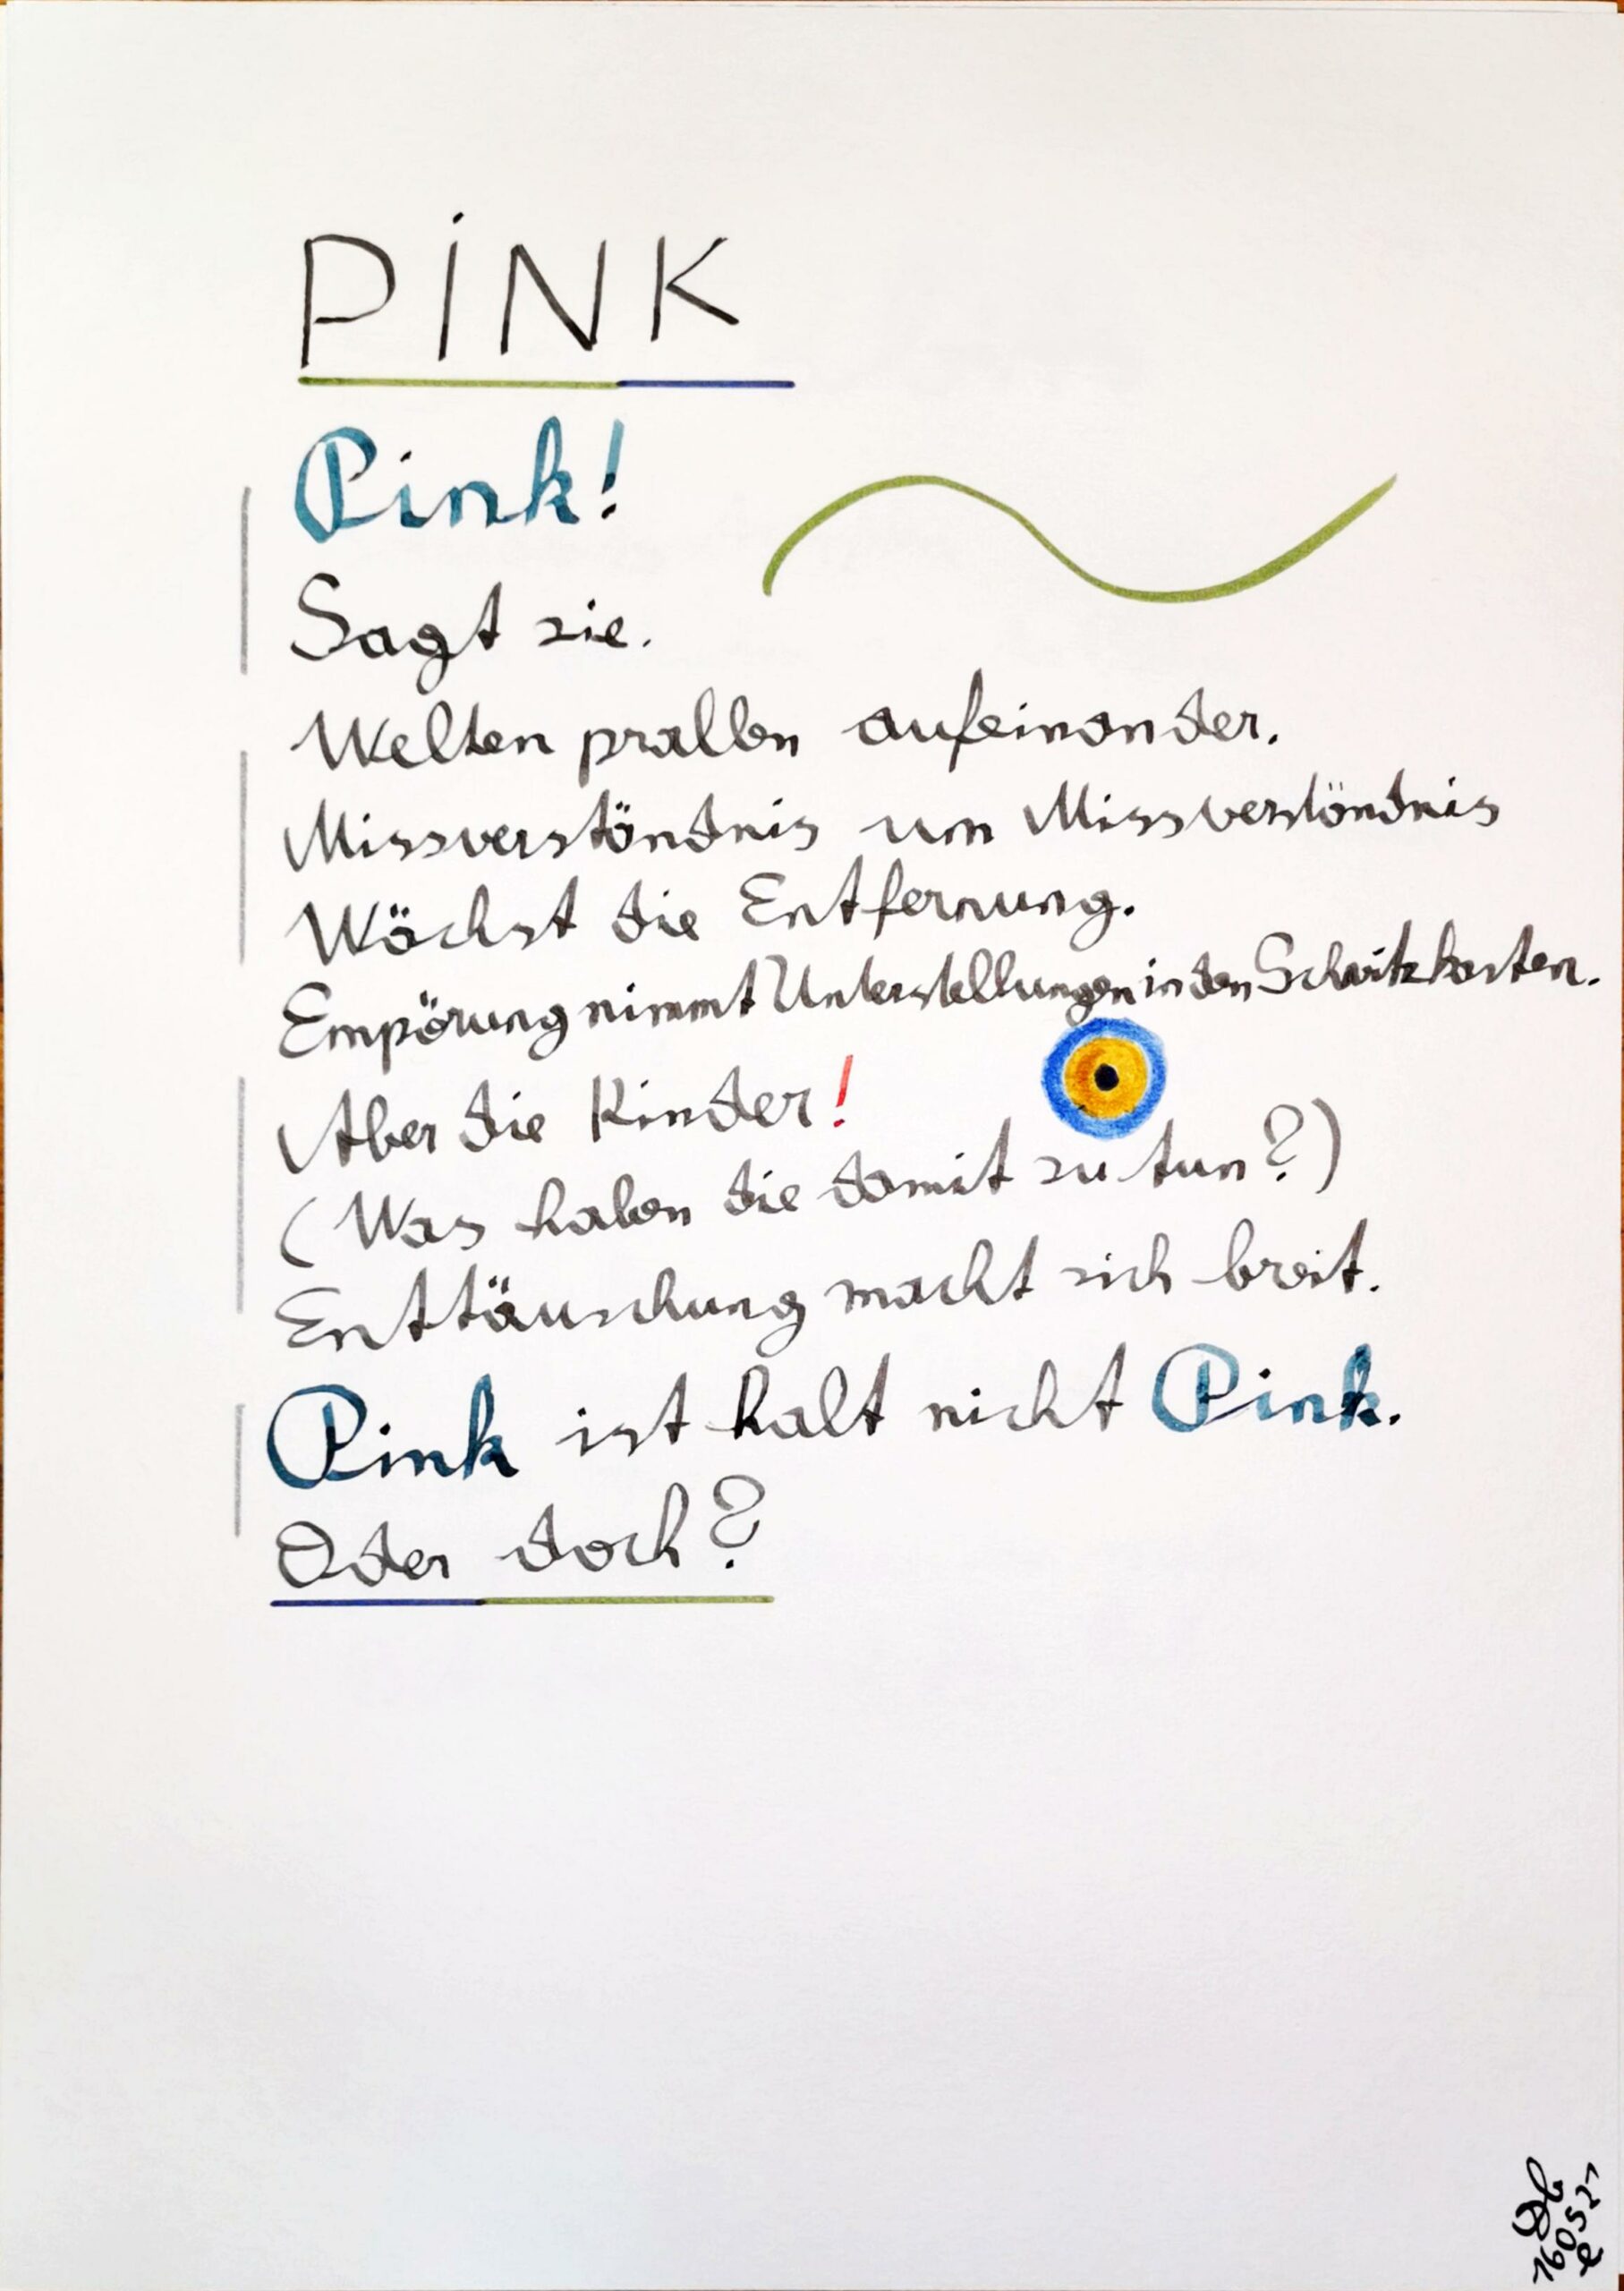 PiNK
Pink!
Sagt sie.
Welten prallen aufeinander.
Missverständnis um Missverständnis
Wächst die Entfernung.
Empörung nimmt Unterstellungen in den Schwitzkasten.
Aber die Kinder!
(Was haben die damit zu tun?)
Enttäuschung macht sich breit.
Pink ist halt nicht Pink.
Oder doch?